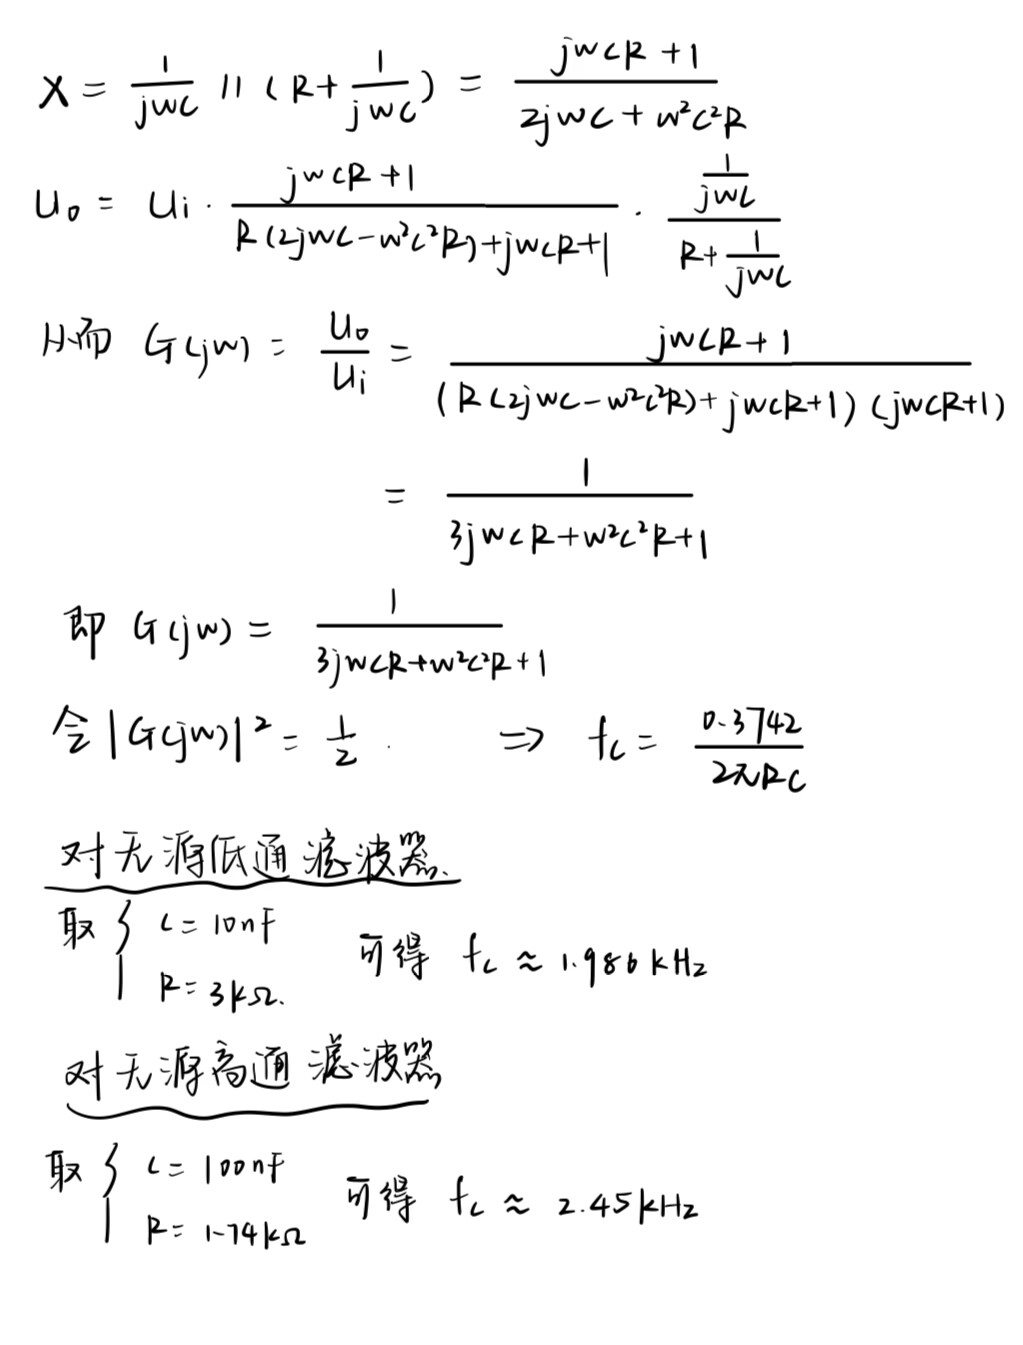 X = \frac{1}{jwC} // (R + \frac{1}{jwC}) = \frac{jwCR+1}{2jwC+w²C²R}
U₀ = Ui · \frac{jwCR+1}{R(2jwC-w²C²R)+jwCR+1} · \frac{\frac{1}{jwC}}{R+\frac{1}{jwC}}
从而 G(jw) = \frac{U₀}{Ui} = \frac{jwCR+1}{(R(2jwC-w²C²R)+jwCR+1)(jwCR+1)}
= \frac{1}{3jwCR+w²C²R+1}
即 G(jw) = \frac{1}{3jwCR+w²C²R+1}
令 |G(jw)|² = \frac{1}{2} . ⇒ fc = \frac{0.3742}{2πRC}
对无源低通滤波器.
取 { C = 10nF
R = 3kΩ. 可得 fc ≈ 1.986kHz
对无源高通滤波器
取 { C = 100nF
R = 1.74kΩ 可得 fc ≈ 2.45kHz